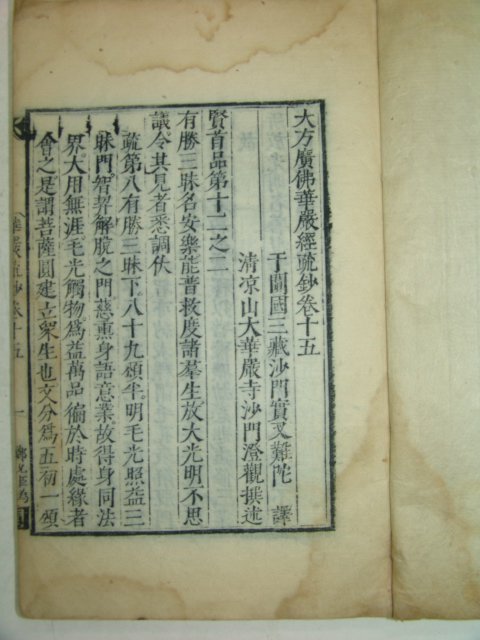 大方廣佛華嚴經疏鈔卷十五
于闐國三藏沙門實叉難陀 譯
清凉山大華嚴寺沙門澄觀撰述
賢首品第十二之二
有勝三昧名安樂能普救度諸羣生放大光明不思
議令其見者悉調伏
疏第八有勝三昧下八十九頌半明毛光照益三
昧門智契解脫之門慈熏身語意業故得身同法
界大用無涯毛光觸物爲益萬品徧於時處緣者
會之是謂菩薩圓建立衆生也文分爲五初一頌
華嚴疏鈔卷十五
一